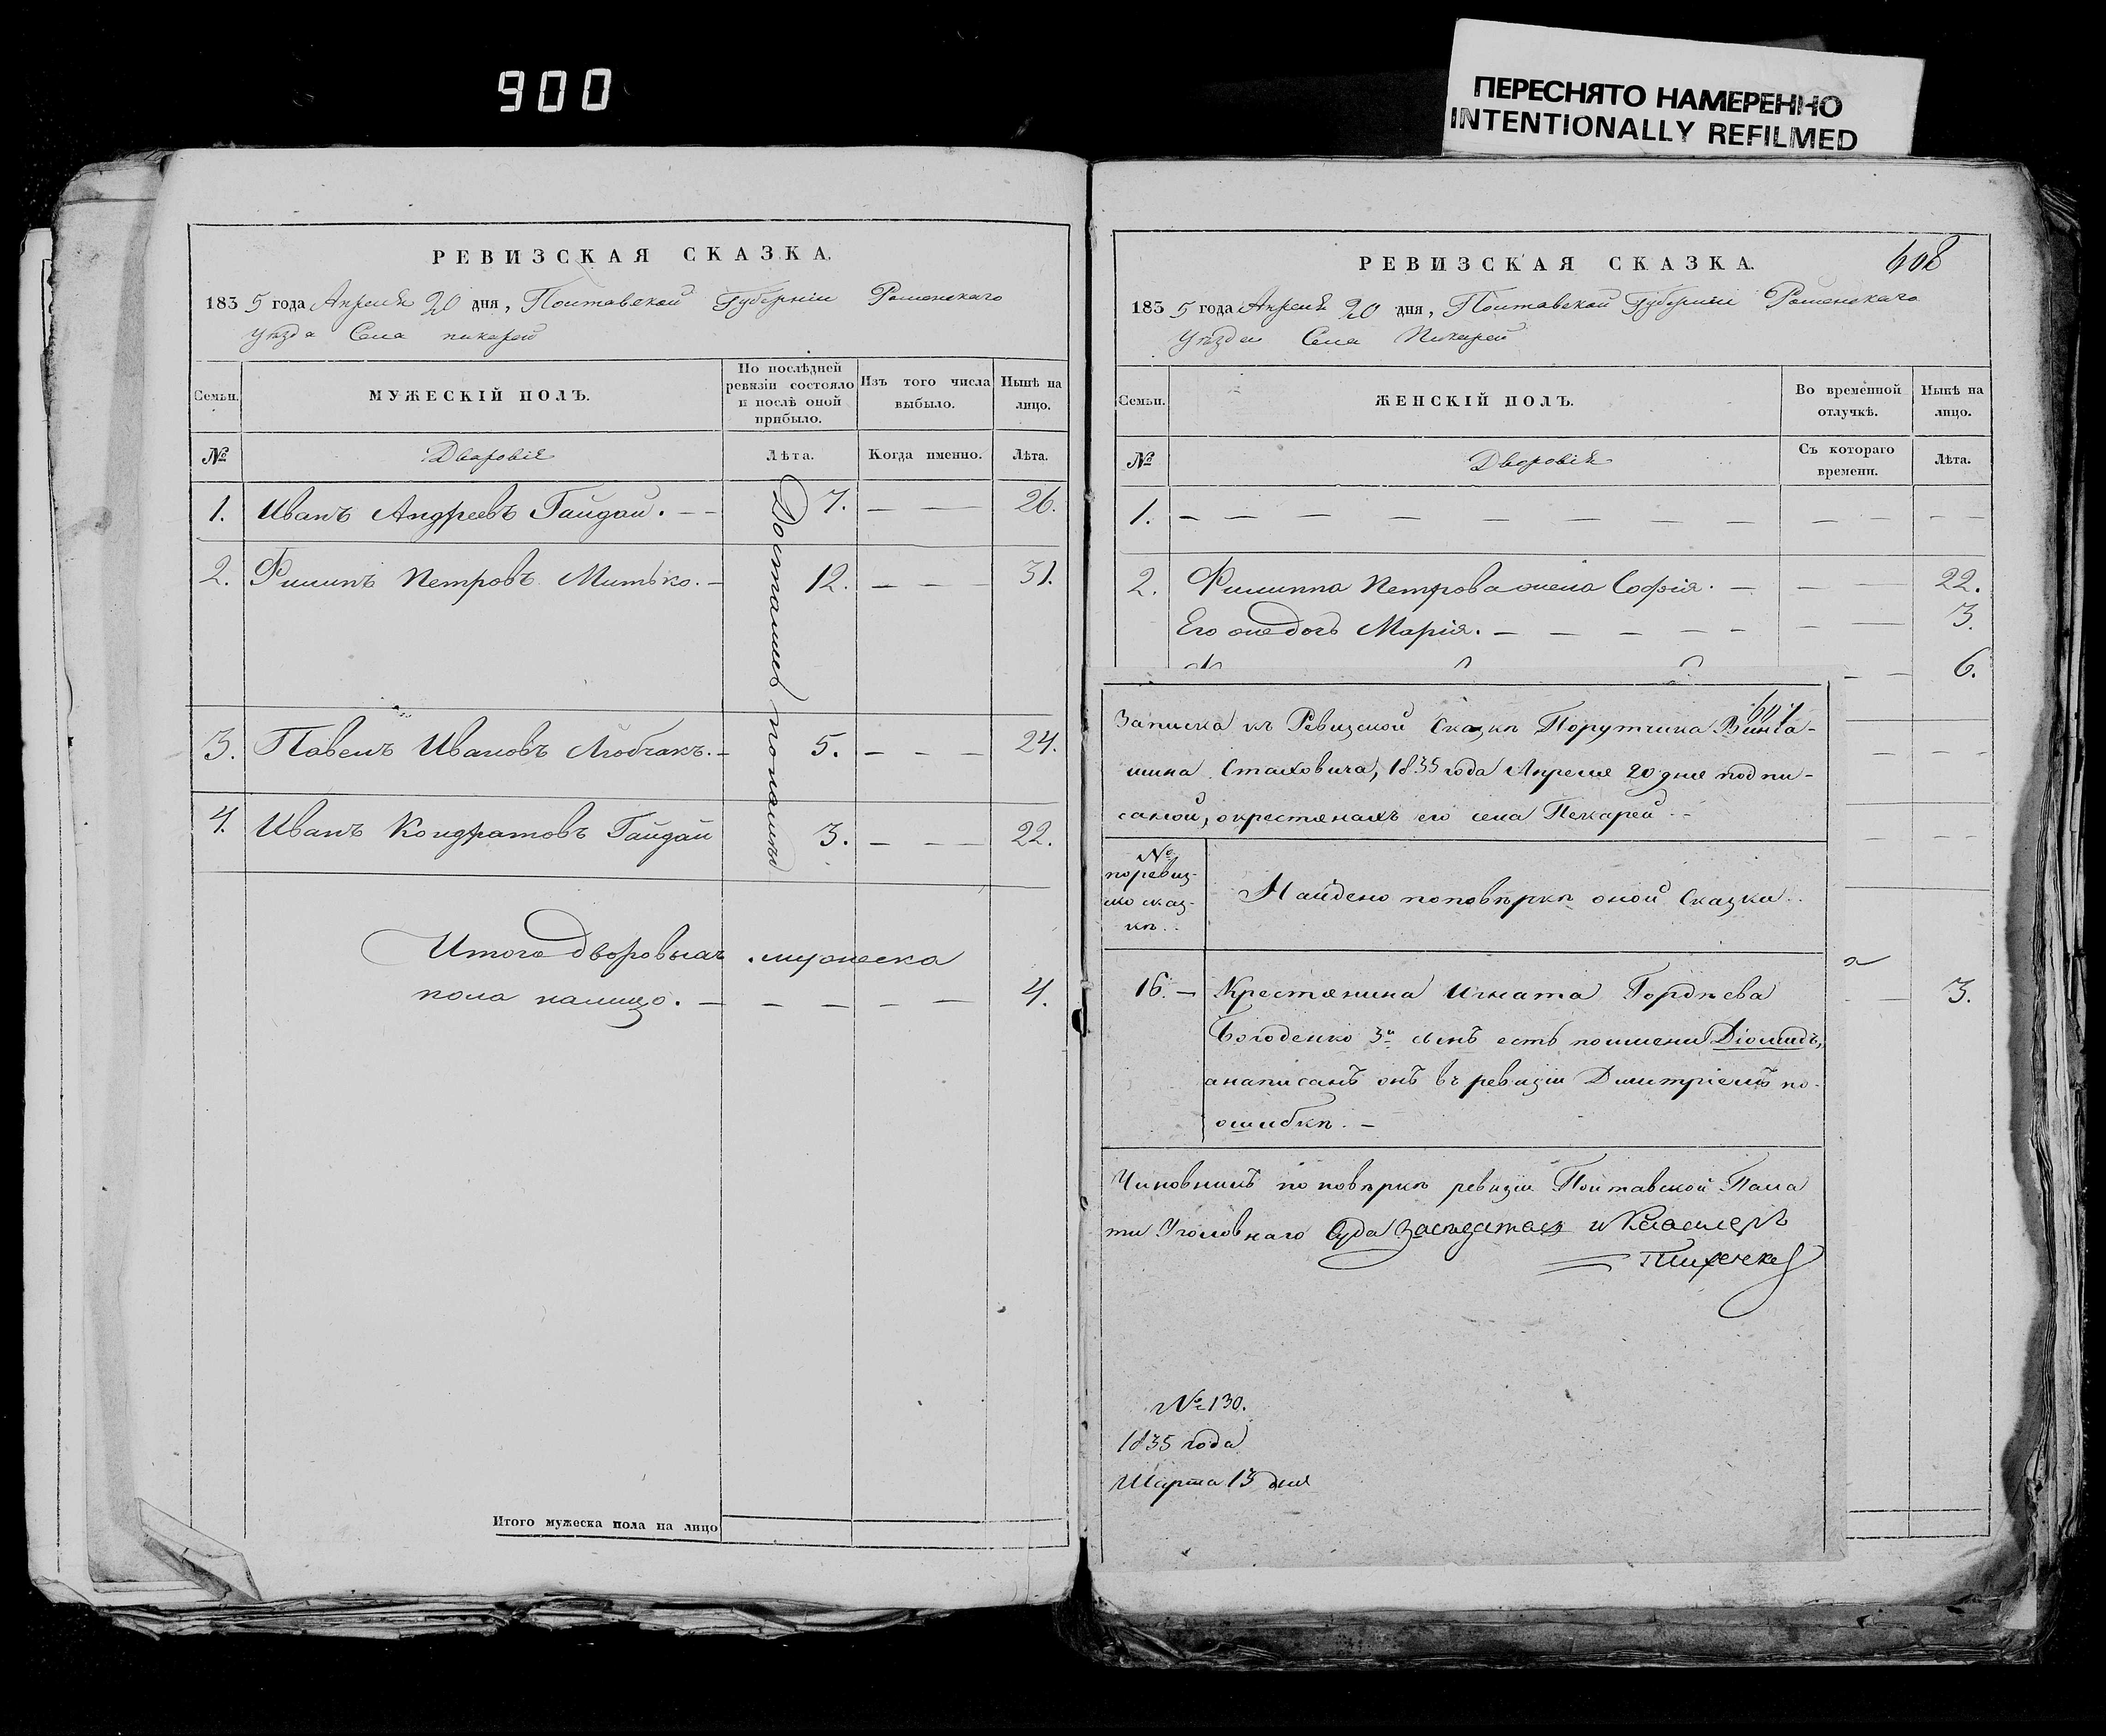 900
ПЕРЕСНЯТО НАМЕРЕННО
INTENTIONALLY REFILMED
РЕВИЗСКАЯ СКАЗКА.
1835 года Апреля 20 дня, Полтавской Губерніи Роменскаго
уѣзда Села пекарей
Семьи.
МУЖЕСКІЙ ПОЛЪ.
По послѣдней ревизіи состояло и послѣ оной прибыло.
Изъ того числа выбыло.
Нынѣ на лицо.
№
Дворовіе
Лѣта.
Когда именно.
Лѣта.
1. Иванъ Андреевъ Гайдай. 7. — — 26.
2. Филипъ Петровъ Митько. — 12. — — 31.
3. Павелъ Ивановъ Любчакъ. — 5. — — 24.
4. Иванъ Кондратовъ Гайдай 3. — — 22.
Достались
Итого дворовыхъ мужеска
пола налицо. — — — — — 4.
Итого мужеска пола на лицо
РЕВИЗСКАЯ СКАЗКА.
608
1835 года Апреля 20 дня, Полтавской Губерніи Роменскаго
уѣзда Села Пекарей
Семьи.
ЖЕНСКІЙ ПОЛЪ.
Во временной отлучкѣ.
Нынѣ на лицо.
№
Дворовіе
Съ котораго времени.
Лѣта.
1. — — — — — — — — — — — —
2. Филиппа Петрова жена Софія. — — — 22.
Его же дочь Марія. — — — — — — — 3.
— — 6.
607
Записка къ Ревизской Сказкѣ Порутчика
Стаховича, 1835 года Апреля 20 дня подпи-
саной, о крестянахъ его села Пекарей. —
№
по ревиз-
ско сказ-
кѣ.
Найдено по повѣркѣ оной Сказки.
16. — Крестянина Игната Гордѣева
3й сынъ есть по имени Діомидъ,
а написанъ онъ въ ревизіи Димитріемъ по-
ошибкѣ. —
— 3.
Чиновникъ по повѣркѣ ревизіи Полтавской Пала
ты Уголовнаго Суда Засѣдатель и Кавалеръ
№ 130.
1835 года
Марта 13 дня